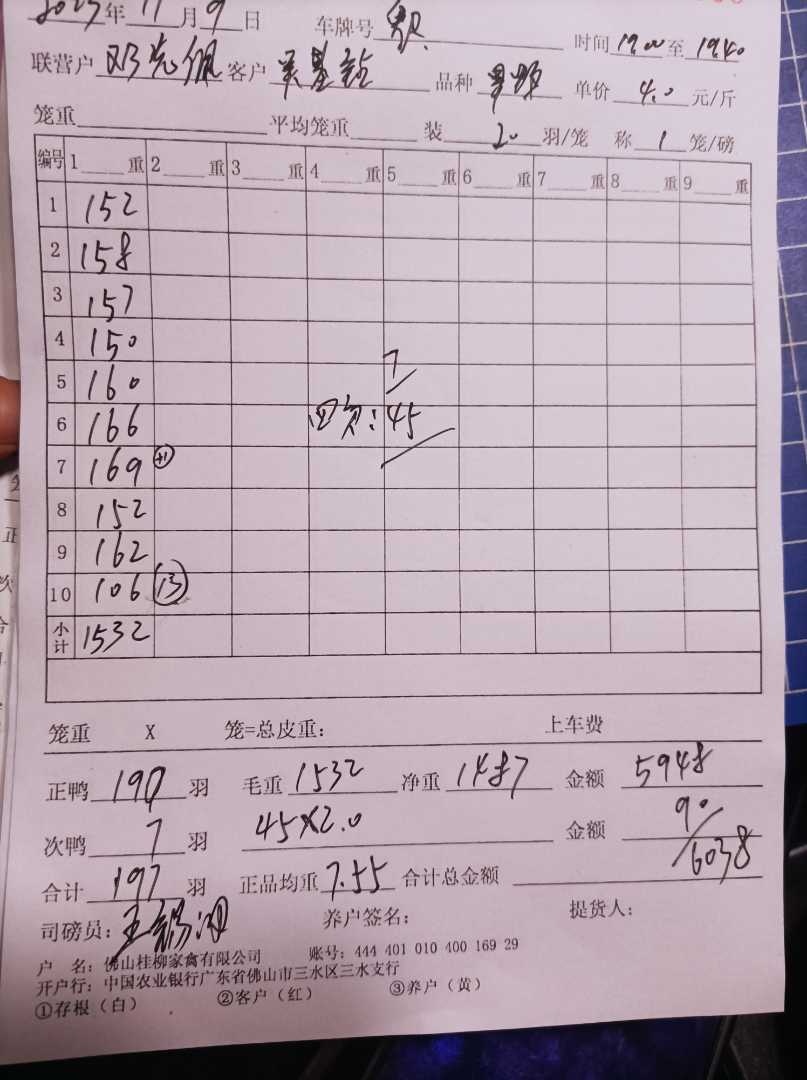 年 11 月 9 日 车牌号
时间 19.00 至 19.40
联营户 邓 客户 吴基 品种 单价 4.0 元/斤
笼重 平均笼重 装 20 羽/笼 称 1 笼/磅
编号 1 重 2 重 3 重 4 重 5 重 6 重 7 重 8 重 9 重
1 152
2 158
3 157
4 150
7
5 160
6 166 45
7 169 +1
8 152
9 162
10 106 13
小计 1532
笼重 X 笼=总皮重: 上车费
正鸭 190 羽 毛重 1532 净重 1487 金额 5948
次鸭 7 羽 45X2.0 金额 90
6038
合计 197 羽 正品均重 7.55 合计总金额
司磅员: 王锡 养户签名: 提货人:
户 名: 佛山桂柳家禽有限公司 账号: 444 401 010 400 169 29
开户行: 中国农业银行广东省佛山市三水区三水支行
①存根(白) ②客户(红) ③养户(黄)